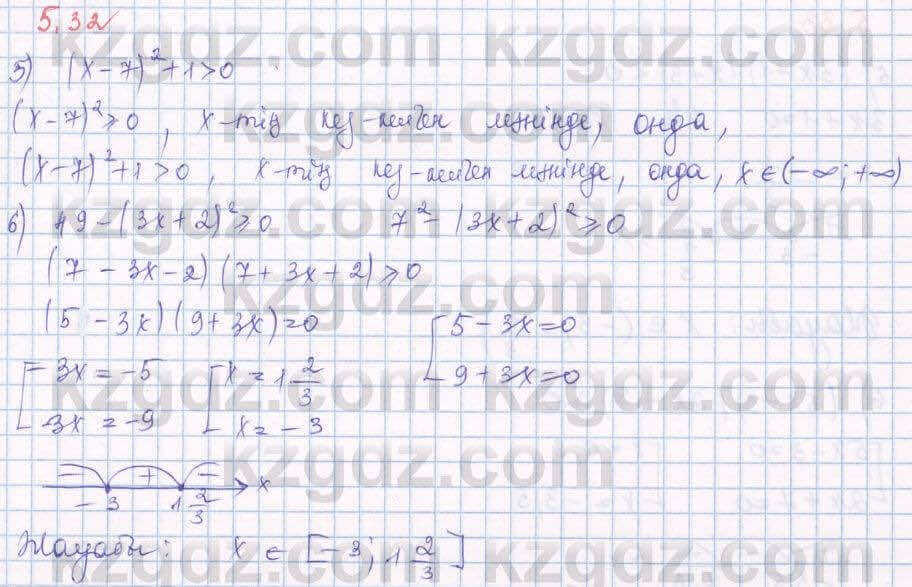 5.32
5) (x-7)²+1>0
(x-7)²≥0, x-тің кез-келген мәнінде, онда,
(x-7)²+1>0, x-тің кез-келген мәнінде, онда, x∈(-∞;+∞)
6) 49-(3x+2)²≥0 7²-(3x+2)²≥0
(7-3x-2)(7+3x+2)≥0
(5-3x)(9+3x)=0 [5-3x=0
9+3x=0
[-3x=-5 [x=1 2/3
3x=-9 x=-3
- + - x
-3 1 2/3
Жауабы: x∈[-3; 1 2/3]
kzgdz.com
kzgdz.com
kzgdz.com
kzgdz.com
kzgdz.com